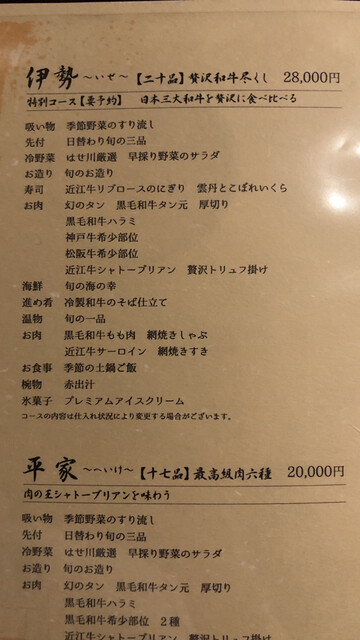 伊勢 ～いせ～ 【二十品】贅沢和牛尽くし 28,000円
特別コース【要予約】 日本三大和牛を贅沢に食べ比べる
吸い物 季節野菜のすり流し
先付 日替わり旬の三品
冷野菜 はせ川厳選 早採り野菜のサラダ
お造り 旬のお造り
寿司 近江牛リブロースのにぎり 雲丹とこぼれいくら
お肉 幻のタン 黒毛和牛タン元 厚切り
黒毛和牛ハラミ
神戸牛希少部位
松阪牛希少部位
近江牛シャトーブリアン 贅沢トリュフ掛け
海鮮 旬の海の幸
進め肴 冷製和牛のそば仕立て
温物 旬の一品
お肉 黒毛和牛もも肉 網焼きしゃぶ
近江牛サーロイン 網焼きすき
お食事 季節の土鍋ご飯
椀物 赤出汁
氷菓子 プレミアムアイスクリーム
コースの内容は仕入れ状況により変更する場合がございます。
平家 ～へいけ～ 【十七品】最高級肉六種 20,000円
肉の王シャトーブリアンを味わう
吸い物 季節野菜のすり流し
先付 日替わり旬の三品
冷野菜 はせ川厳選 早採り野菜のサラダ
お造り 旬のお造り
お肉 幻のタン 黒毛和牛タン元 厚切り
黒毛和牛ハラミ
黒毛和牛希少部位 2種
近江牛シャトーブリアン 贅沢トリュフ掛け